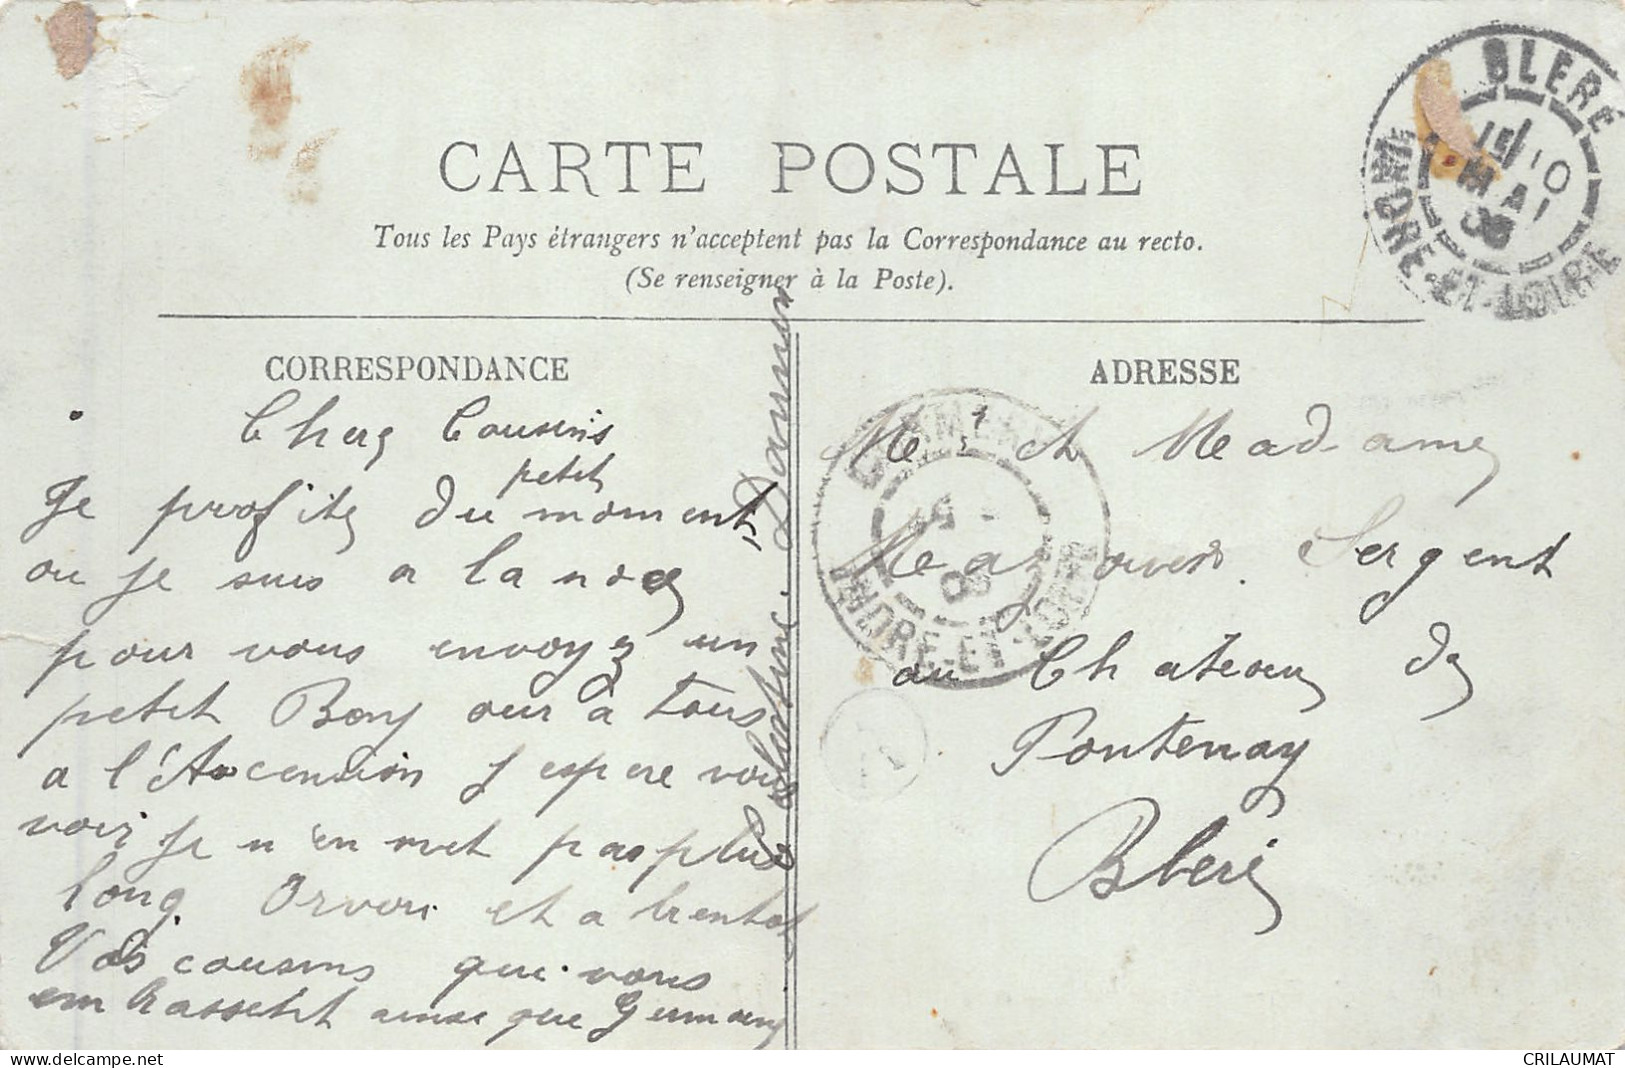 CARTE POSTALE
Tous les Pays étrangers n'acceptent pas la Correspondance au recto.
(Se renseigner à la Poste).
BLERÉ
INDRE-ET-LOIRE
10
MAI
CORRESPONDANCE
Cherg Cousins
petit
Je profite du moment
ou je suis a la noce
pour vous envoyez un
petit Bonj our a tous
a l'Ascension j espere vous
voir je n'en met pas plus
long. Orvoir et a bientot
Vos cousins qui vous
embrassent ainsi que Germaine
ADRESSE
Me et Madame
Sergent
au Chateau de
Fontenay
Bleré
INDRE-ET-LOIRE
CRILAUMAT